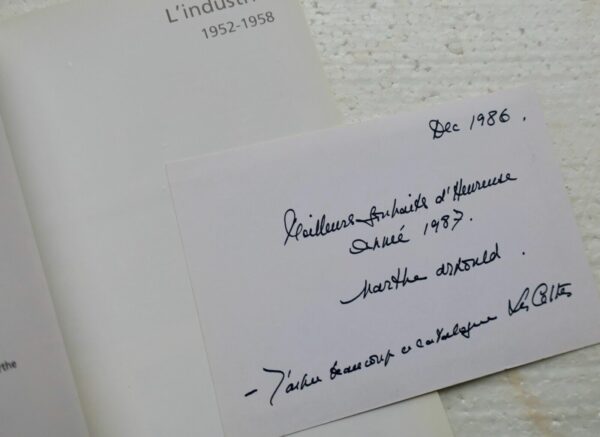 L'industri
1952-1958
the
Dec 1986.
Meilleurs souhaits d'Heureuse
Année 1987.
Marthe Arnould.
- J'aime beaucoup ce catalogue Les